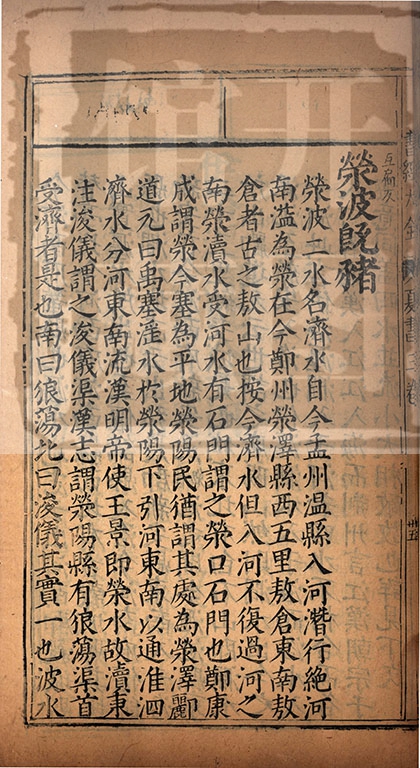 滎波既豬
滎波二水名濟水自今孟州温縣入河潛行絶河
南溢為滎在今鄭州滎澤縣西五里敖倉東南敖
倉者古之敖山也按今濟水但入河不復過河之
南滎瀆水受河水有石門謂之滎口石門也鄭康
成謂滎今塞為平地滎陽民猶謂其處為滎澤酈
道元曰禹塞滛水於滎陽下引河東南以通淮泗
濟水分河東南流漢明帝使王景即滎水故瀆東
注浚儀謂之浚儀渠漢志謂滎陽縣有狼蕩渠首
受濟者是也南曰狼蕩北曰浚儀其實一也波水